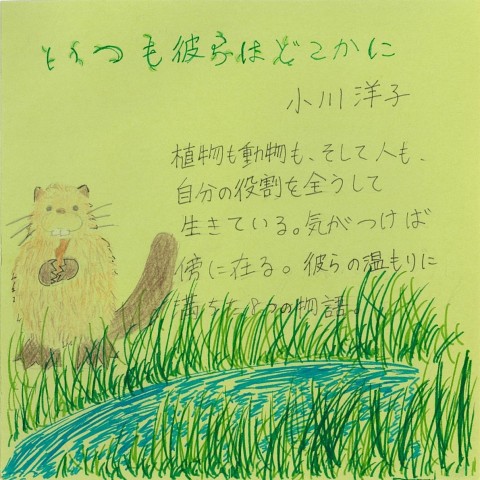 いつも彼らはどこかに
小川洋子
植物も動物も、そして人も、
自分の役割を全うして
生きている。気がつけば
傍に在る。彼らの温もりに
満ちた8つの物語。